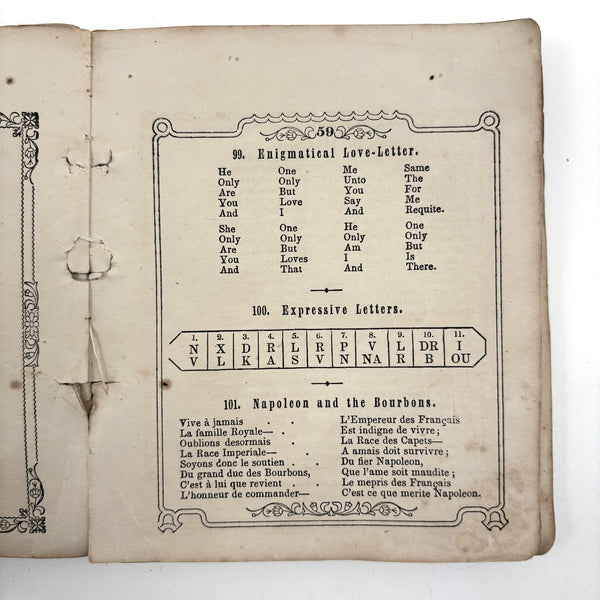 59
99. Enigmatical Love-Letter.
He One Me Same
Only Only Unto The
Are But You For
You Love Say Me
And I And Requite.
She One He One
Only Only Only Only
Are But Am But
You Loves I Is
And That And There.
100. Expressive Letters.
1. 2. 3. 4. 5. 6. 7. 8. 9. 10. 11.
N X D R L R P V L DR I
V L K A S V N NA R B OU
101. Napoleon and the Bourbons.
Vive à jamais . . L'Empereur des Français
La famille Royale— . Est indigne de vivre;
Oublions desormais . La Race des Capets—
La Race Imperiale— . A amais doit survivre;
Soyons donc le soutien . . Du fier Napoleon,
Du grand duc des Bourbons, Que l'ame soit maudite;
C'est à lui que revient . . Le mepris des Français
L'honneur de commander— C'est ce que merite Napoleon.